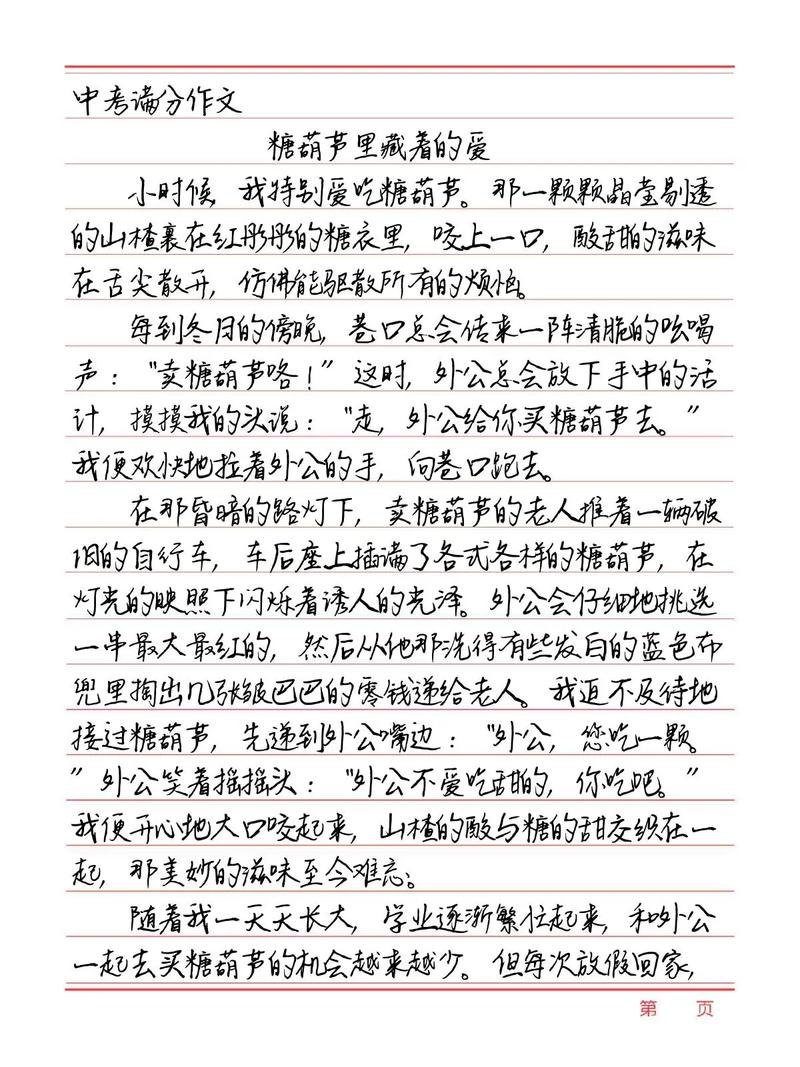 中考满分作文
糖葫芦里藏着的爱
小时候，我特别爱吃糖葫芦。那一颗颗晶莹剔透
的山楂裹在红彤彤的糖衣里，咬上一口，酸甜的滋味
在舌尖散开，仿佛能驱散所有的烦恼。
每到冬日的傍晚，巷口总会传来一阵清脆的吆喝
声：“卖糖葫芦咯！”这时，外公总会放下手中的活
计，摸摸我的头说：“走，外公给你买糖葫芦去。”
我便欢快地拉着外公的手，向巷口跑去。
在那昏暗的路灯下，卖糖葫芦的老人推着一辆破
旧的自行车，车后座上插满了各式各样的糖葫芦，在
灯光的映照下闪烁着诱人的光泽。外公会仔细地挑选
一串最大最红的，然后从他那洗得有些发白的蓝色布
兜里掏出几张皱巴巴的零钱递给老人。我迫不及待地
接过糖葫芦，先递到外公嘴边：“外公，您吃一颗。
”外公笑着摇摇头：“外公不爱吃甜的，你吃吧。”
我便开心地大口咬起来，山楂的酸与糖的甜交织在一
起，那美妙的滋味至今难忘。
随着我一天天长大，学业逐渐繁忙起来，和外公
一起去买糖葫芦的机会越来越少。但每次放假回家，
第 页